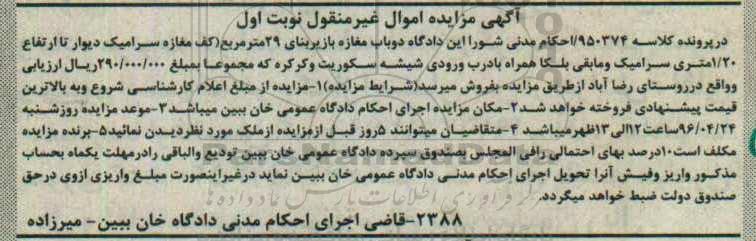 آگهی مزایده اموال غیرمنقول نوبت اول
درپرونده کلاسه ۹۵۰۳۷۴/احکام مدنی شورا این دادگاه دوباب مغازه بازیربنای ۲۹مترمربع(کف مغازه سرامیک دیوار تا ارتفاع
۱/۲۰متری سرامیک ومابقی بلکا همراه بادرب ورودی شیشه سکوریت وکرکره که مجموعا بمبلغ ۲۹۰/۰۰۰/۰۰۰ریال ارزیابی
وواقع درروستای رضا آباد ازطریق مزایده بفروش میرسد(شرایط مزایده)۱-مزایده از مبلغ اعلام کارشناسی شروع وبه بالاترین
قیمت پیشنهادی فروخته خواهد شد۲-مکان مزایده اجرای احکام دادگاه عمومی خان ببین میباشد۳-موعد مزایده روزشنبه
۹۶/۰۴/۲۴ساعت۱۲الی۱۳ظهرمیباشد ۴-متقاضیان میتوانند ۵روز قبل ازمزایده ازملک مورد نظردیدن نمائید۵-برنده مزایده
مکلف است۱۰درصد بهای احتمالی رافی المجلس بصندوق سپرده دادگاه عمومی خان ببین تودیع والباقی رادرمهلت یکماه بحساب
مذکور واریز وفیش آنرا تحویل اجرای احکام مدنی دادگاه عمومی خان ببین نماید درغیراینصورت مبلغ واریزی ازوی درحق
صندوق دولت ضبط خواهد میگردد.
۲۳۸۸-قاضی اجرای احکام مدنی دادگاه خان ببین- میرزاده